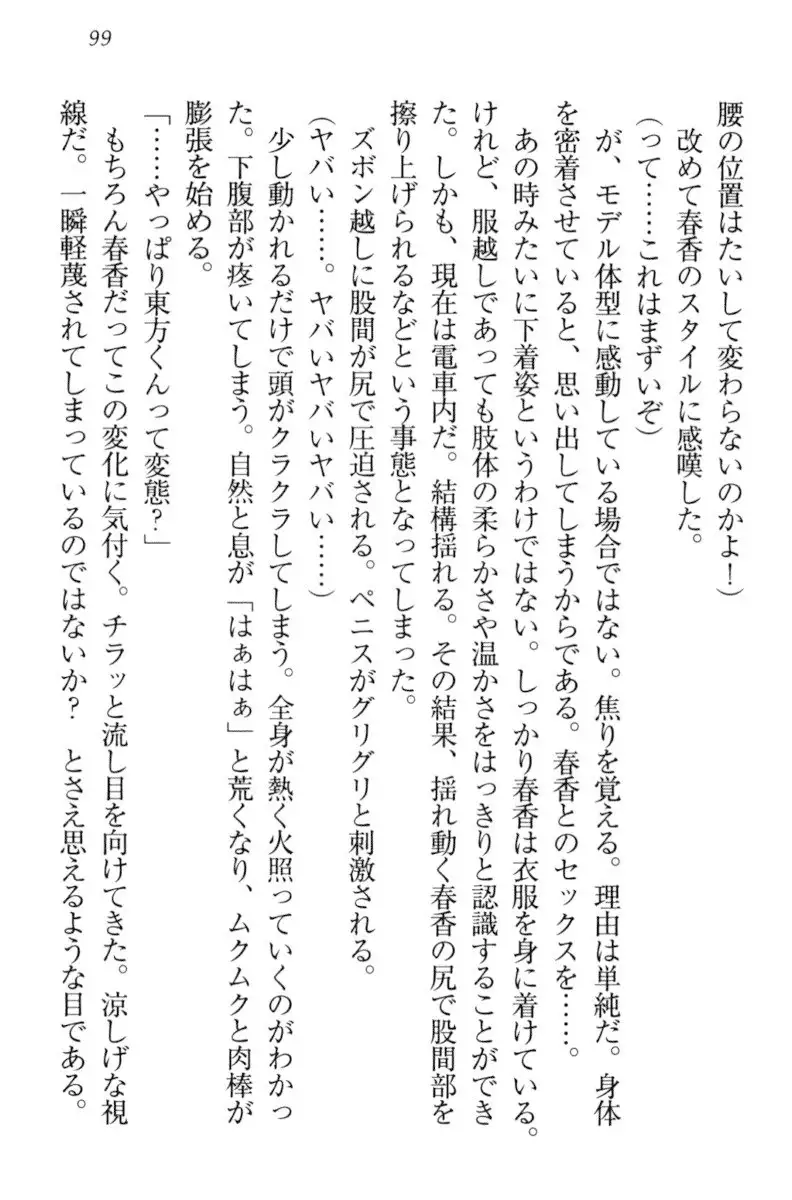 99
腰の位置はたいして変わらないのかよ！）
改めて春香のスタイルに感嘆した。
（って……これはまずいぞ）
が、モデル体型に感動している場合ではない。焦りを覚える。理由は単純だ。身体
を密着させていると、思い出してしまうからである。春香とのセックスを……。
あの時みたいに下着姿というわけではない。しっかり春香は衣服を身に着けている。
けれど、服越しであっても肢体の柔らかさや温かさをはっきりと認識することができ
た。しかも、現在は電車内だ。結構揺れる。その結果、揺れ動く春香の尻で股間部を
擦り上げられるなどという事態となってしまった。
ズボン越しに股間が尻で圧迫される。ペニスがグリグリと刺激される。
（ヤバい……。ヤバいヤバいヤバい……）
少し動かれるだけで頭がクラクラしてしまう。全身が熱く火照っていくのがわかっ
た。下腹部が疼いてしまう。自然と息が「はぁはぁ」と荒くなり、ムクムクと肉棒が
膨張を始める。
「……やっぱり東方くんって変態？」
もちろん春香だってこの変化に気付く。チラッと流し目を向けてきた。涼しげな視
線だ。一瞬軽蔑されてしまっているのではないか？　とさえ思えるような目である。